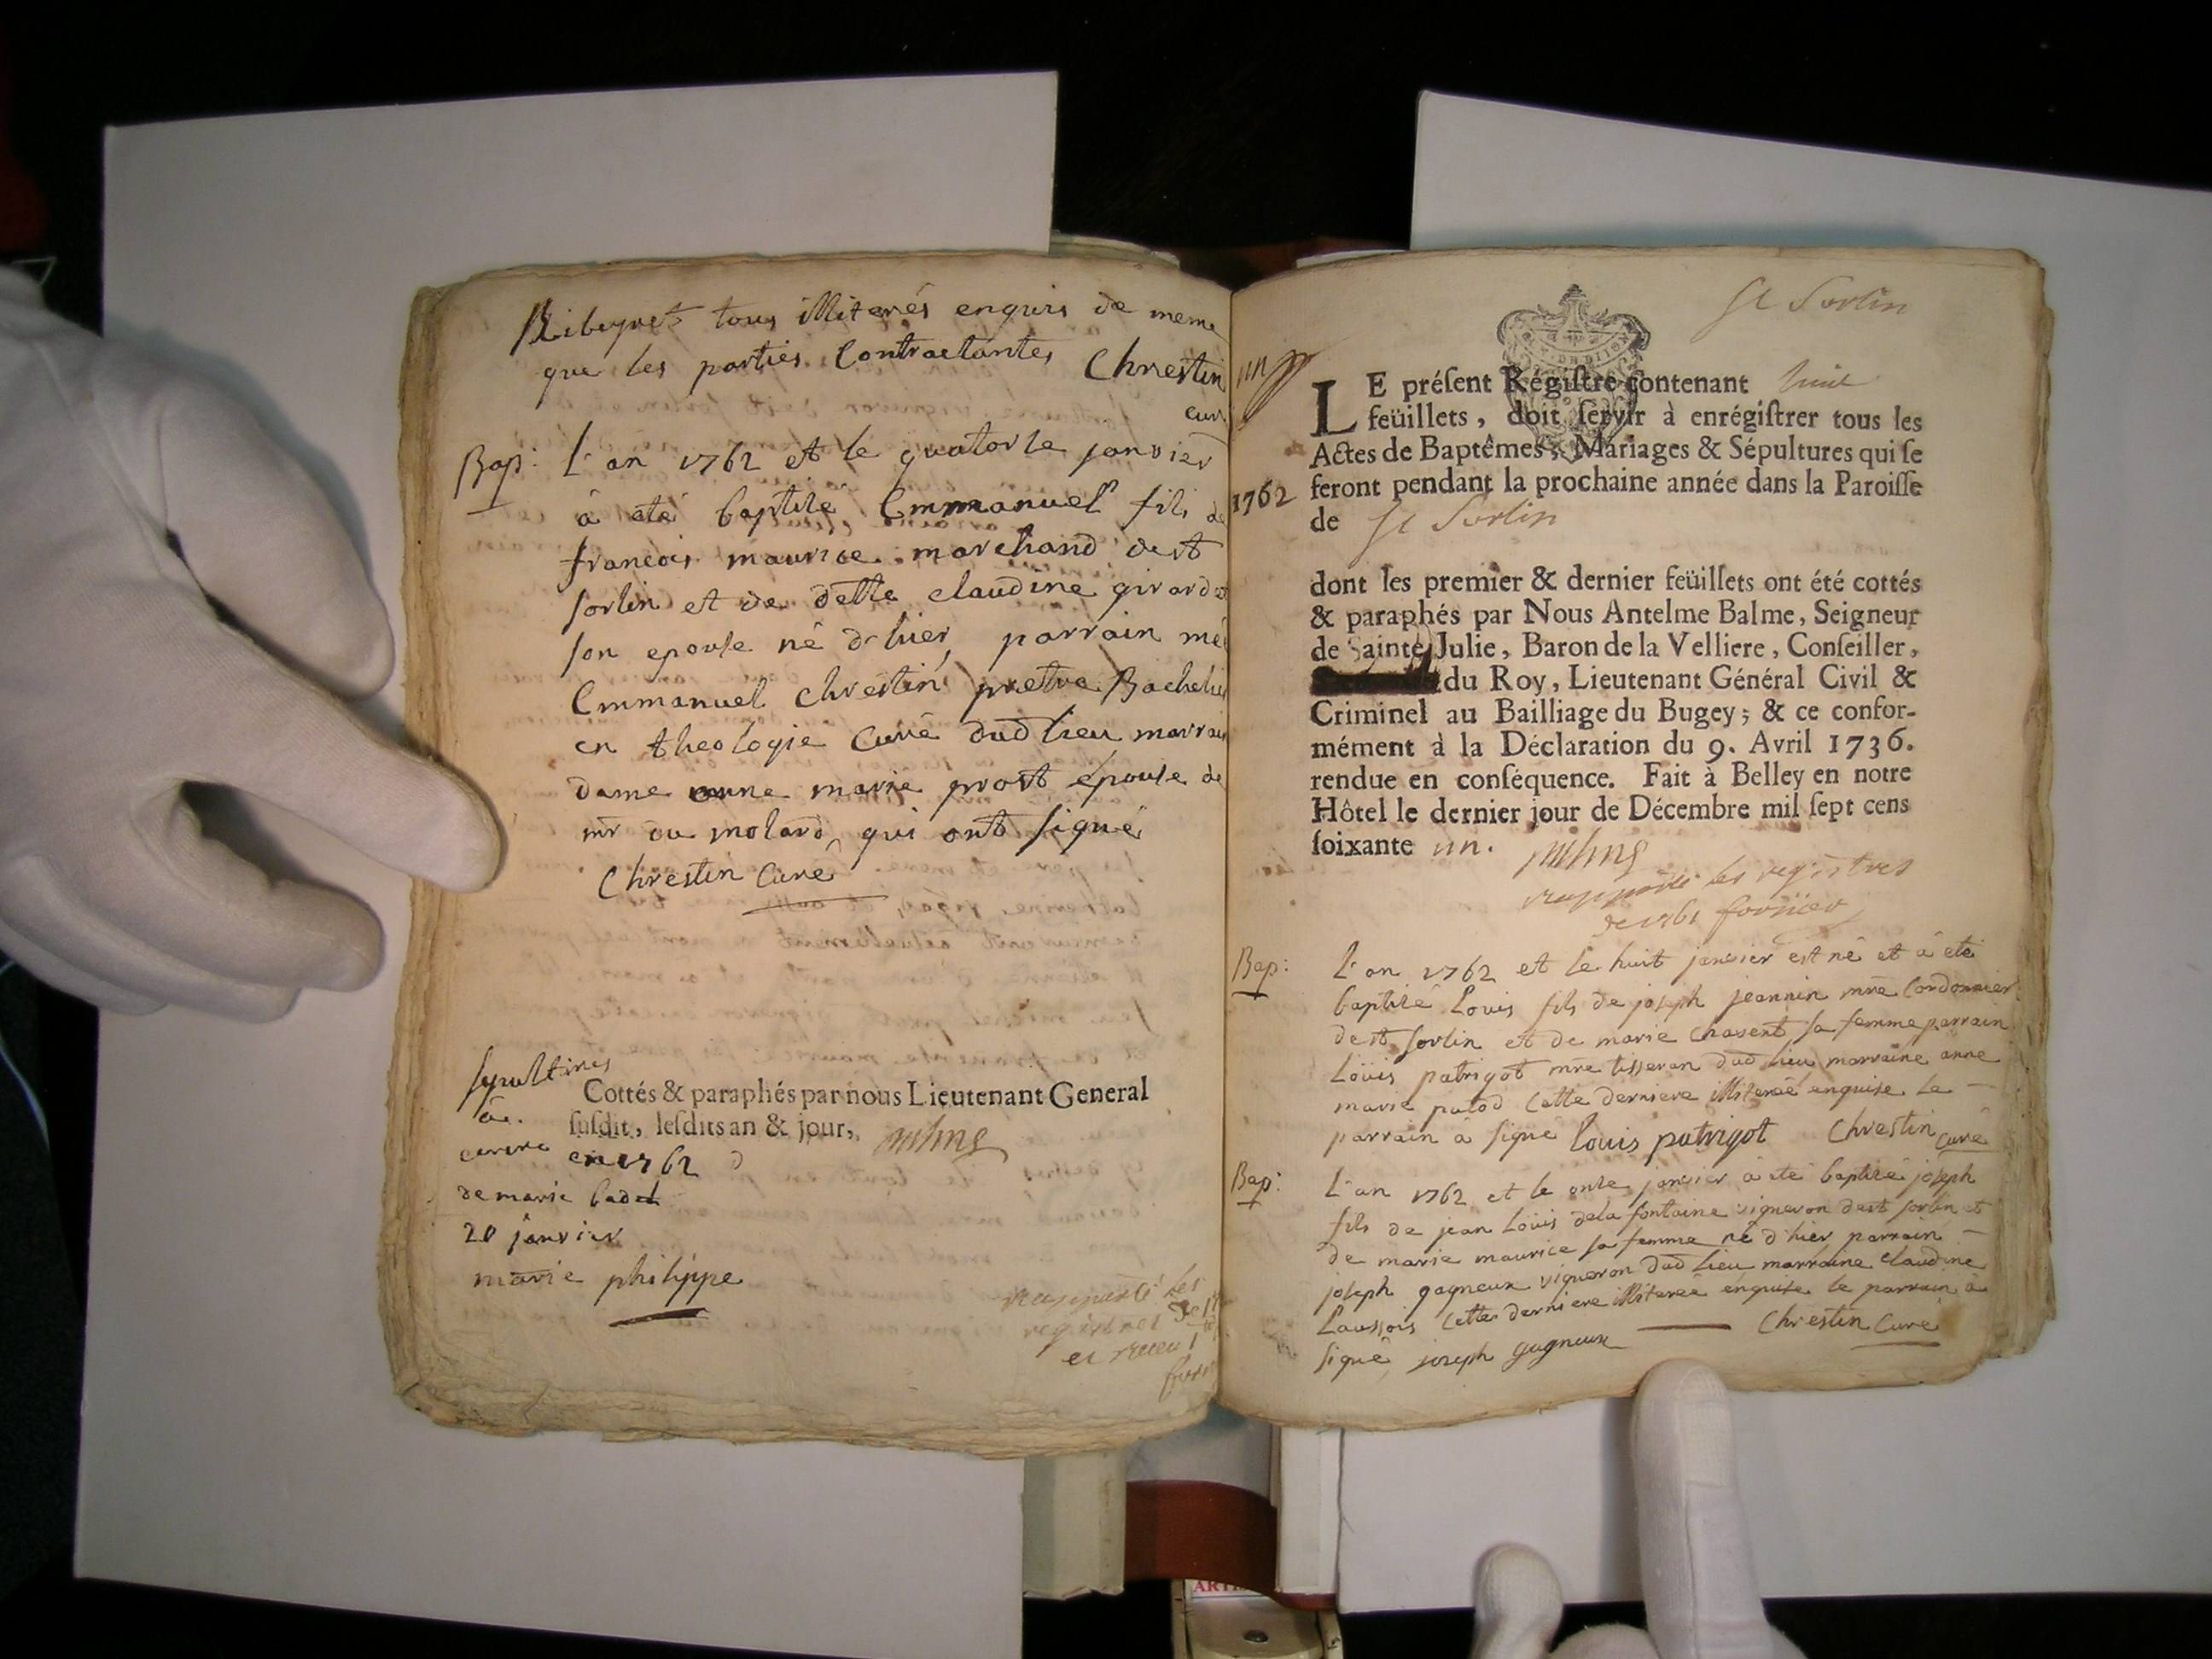 Ribeyret tous illiterés enquis de meme
que les parties Contractantes Chrestin
curé
Bap: L'an 1762 et le quatorse janvier
à été baptisé Emmanuel fils de
françois maurice marchand de st
sorlin et de dette claudine girardet
son epouse né d'hier, parrain mre
Emmanuel chrestin prêtre Bachelier
en theologie Curé dud lieu marraine
dame anne marie prost épouse de
mr du molard qui ont signé
Chrestin Curé
sepultures
à
Cottés & paraphés par nous Lieutenant General
susdit, lesdits an & jour,
en 1762
de marie badet
20 janvier
marie philippe
rapporté les
registres de
et
St Sorlin
un
DIJON
LE présent Régistre contenant huit
feüillets, doit servir à enrégistrer tous les
Actes de Baptêmes, Mariages & Sépultures qui se
1762 feront pendant la prochaine année dans la Paroisse
de St Sorlin
dont les premier & dernier feüillets ont été cottés
& paraphés par Nous Antelme Balme, Seigneur
de Sainte Julie, Baron de la Velliere, Conseiller,
du Roy, Lieutenant Général Civil &
Criminel au Bailliage du Bugey; & ce confor-
mément à la Déclaration du 9. Avril 1736.
rendue en conséquence. Fait à Belley en notre
Hôtel le dernier jour de Décembre mil sept cens
soixante un.
rapporté les registres
de 1761
Bap: L'an 1762 et le huit janvier est né et à été
baptisé Louis fils de joseph jeannin mre Cordonnier
de st sorlin et de marie Chasent sa femme parrain
Loüis patrigot mre tisseran dud lieu marraine anne
marie patod cette derniere illiterée enquise le
parrain à signé louis patrigot Chrestin Curé
Bap: L'an 1762 et le onse janvier à été baptisé joseph
fils de jean Loüis dela fontaine vigneron de st sorlin et
de marie maurice sa femme né d'hier parrain
joseph gagneux vigneron dud lieu marraine claudine
Laussois cette derniere illiterée enquise le parrain à
signé joseph gagneux Chrestin Curé